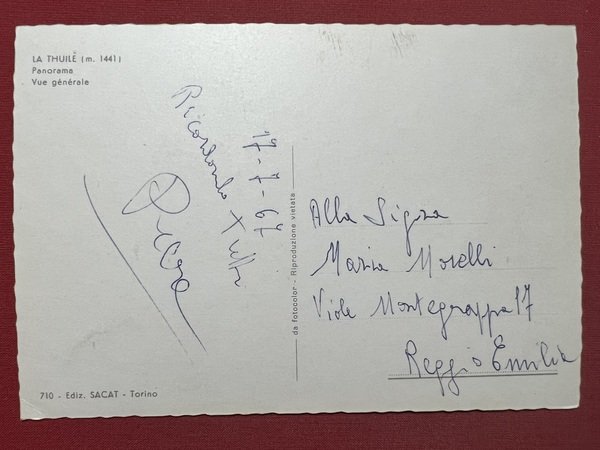 LA THUILE (m. 1441)
Panorama
Vue générale
17-7-67
Ricordando
da fotocolor - Riproduzione vietata
Alla Sigra
Maria Morelli
Viale Montegrappa 17
Reggio Emilia
710 - Ediz. SACAT - Torino